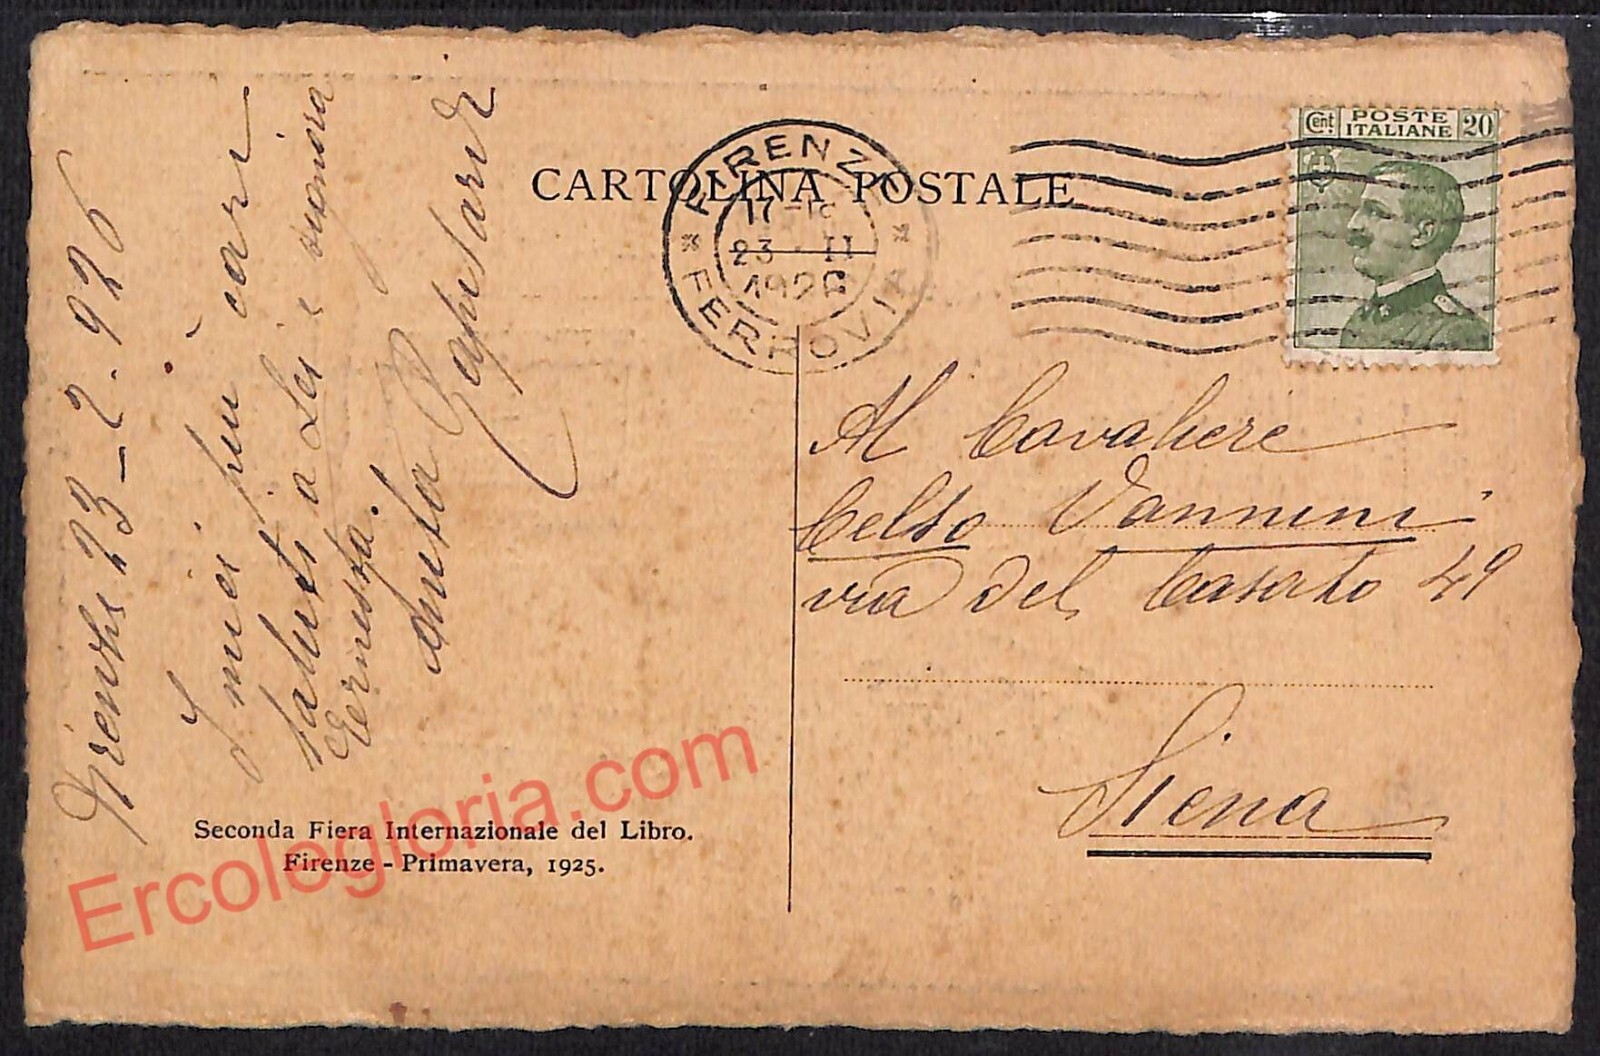 CARTOLINA POSTALE
FIRENZE
17-18
23 - II
1926
FERROVIA
Cent POSTE ITALIANE 20
Firenze 23-2-926
I miei più cari
saluti a Lei e signora
Ernesta.
Anita
Al Cavaliere
Celso Vannini
via del Casato 49
Siena
Seconda Fiera Internazionale del Libro.
Firenze - Primavera, 1925.
Ercolegloria.com